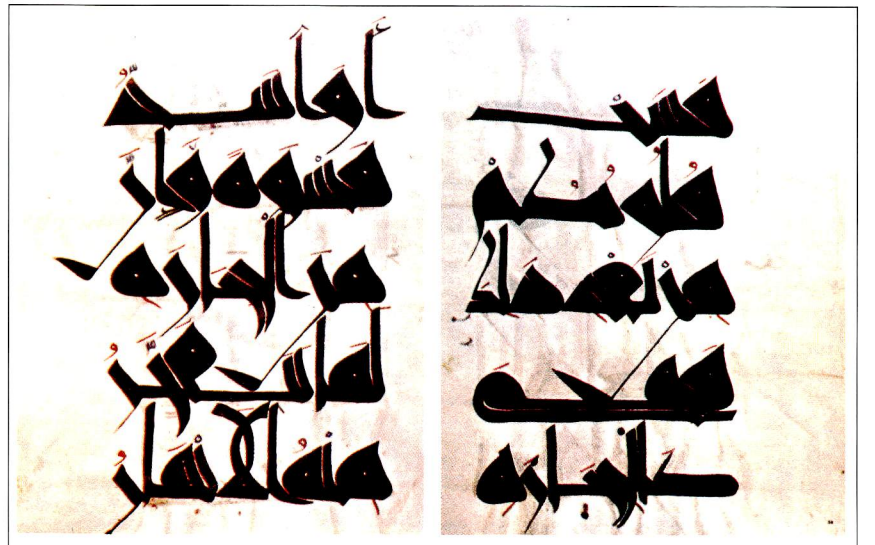 قست
قلوبكم
من بعد ذلك
فهي
كالحجارة
أو أشد
قسوة وإن
من الحجارة
لما يتفجر
منه الأنهار